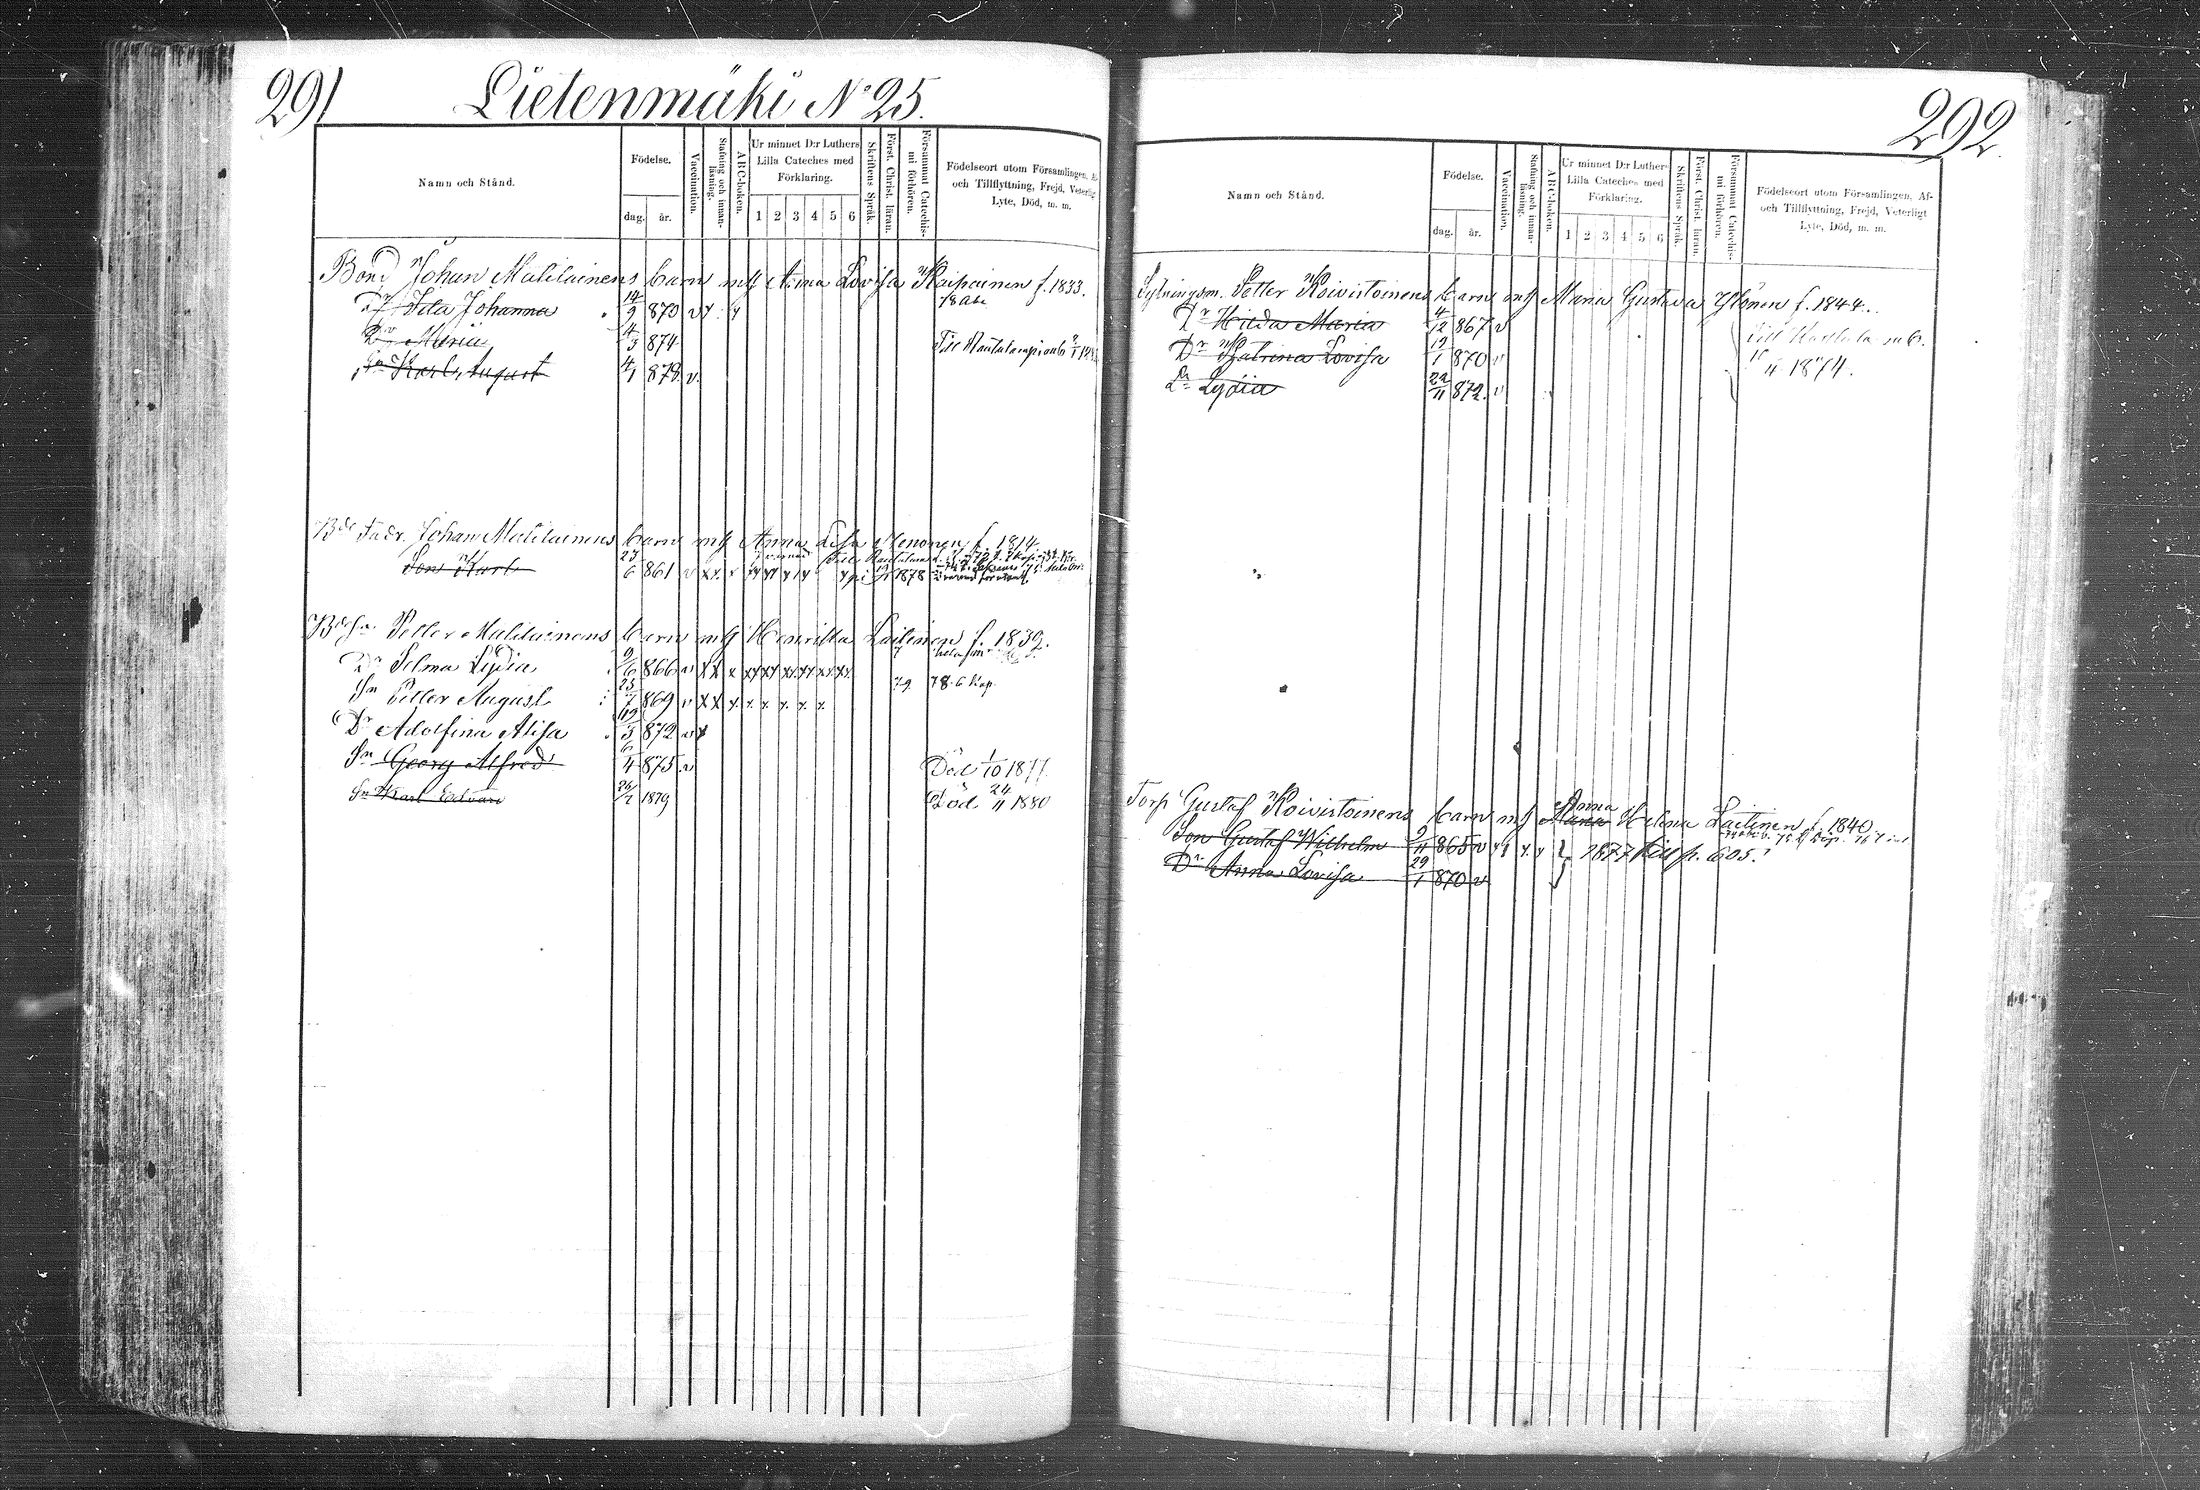 291
Lietenmäki No 25.
Namn och Stånd.
Födelse.
dag. år.
Vaccination.
Stafning och innan-läsning.
ABC-boken.
Ur minnet D:r Luthers
Lilla Cateches med
Förklaring.
1 2 3 4 5 6
Skriftens Språk.
Först. Christ. läran.
Försummat Catechis-mi förhören.
Födelseort utom Församlingen, Af-
och Tillflyttning, Frejd, Veterlig
Lyte, Död, m. m.
Bond. Johan Matilainens barn m/ Anna Lovisa Kaipainen f. 1833.
Dr Ida Johanna 14/9 870 v
Dr Maria 4/3 874
Sn Karl August 4/1 878 v.
Johan Matilainens barn m/ Anna Lisa f. 1814
Son Karl 23/6 861 v 1878
Petter Matilainens barn m/ Henrika Laitinen f. 1839.
Dr Selma Lydia 9/6 866 v
Sn Petter August 25/7 869 v 79 78. 6 Kap.
Dr Adolfina Alisa 19/3 872 v
Sn Georg Alfred 6/4 875 v Död 1/10 1877
Sn Karl Edvard 26/7 1879 Död 24/11 1880
292.
Namn och Stånd.
Födelse.
dag. år.
Vaccination.
Stafning och innan-läsning.
ABC-boken.
Ur minnet D:r Luthers
Lilla Cateches med
Förklaring.
1 2 3 4 5 6
Skriftens Språk.
Först. Christ. läran.
Försummat Catechis-mi förhören.
Födelseort utom Församlingen, Af-
och Tillflyttning, Frejd, Veterligt
Lyte, Död, m. m.
Sytningsm. Petter Koivistoinens barn m/ Maria Gustava Ylönen f. 1844.
Dr Hilda Maria 4/12 867 v
Dr Katrina Lovisa 19/1 870 v
Dr Lydia 22/11 872. v 1874.
Torp Gustaf Koivistoinens barn m/ Maria Anna Helena Laitinen f. 1840
Son Gustaf Wilhelm 9/11 865 v 1877 till p. 605.
Dr Anna Lovisa 29/1 870 v